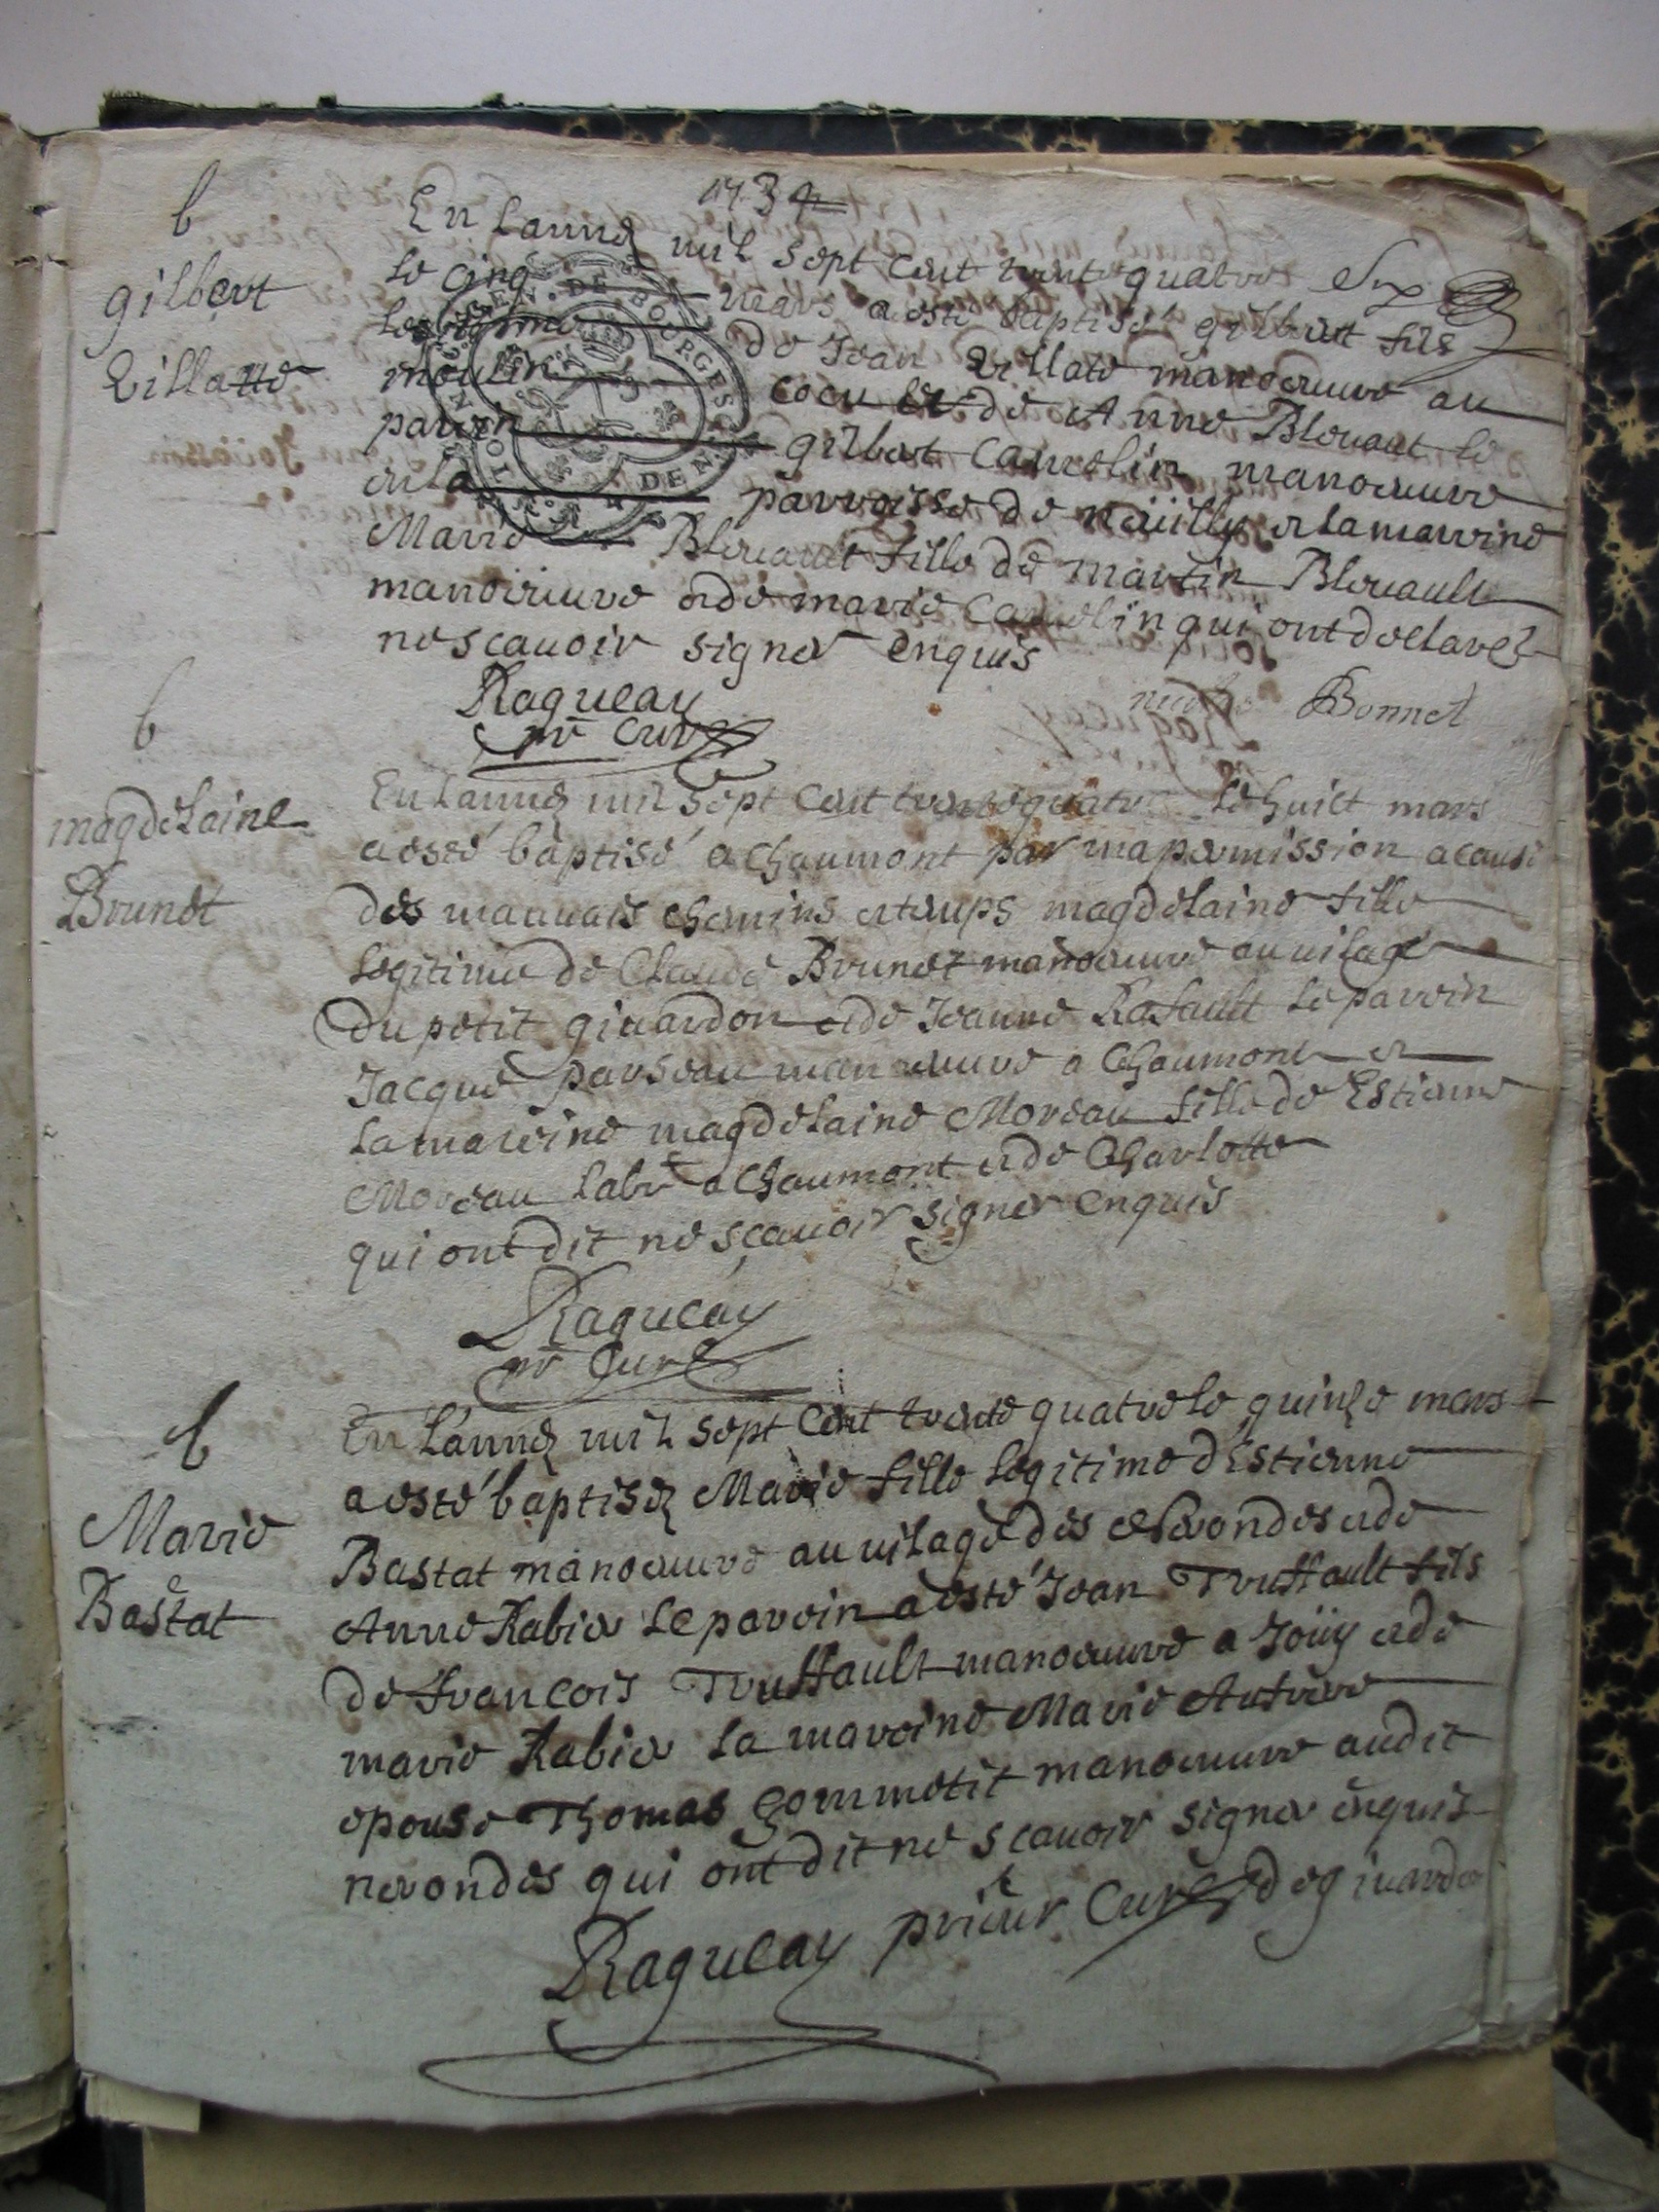 1734
b
gilbert
Villatte
En Lannéz mil sept cent trente quatre Six
le cinq mars a esté baptisé gilbert fils
legitime de Jean Villate manoeuvre au
moulin cocu et de Anne Blouaut le
parein gilbert Camelin manoeuvre
en la parroisse de nüilly et la mareine
Marie Blouault fille de martin Blouault
manoieuvre et de marie Camelin qui ont declarez
ne scauoir signer enquis
Bonnet
Ragueau
pr Curé
b
magdelaine
Brunet
En Lannéz mil sept cent trente quatre le huict mars
a esté baptisé a Chaumont par ma permission a cause
des mauuais chemins et temps magdelaine fille
legitime de Claude Brunet manoeuvre au uilage
du petit giuardon et de Jeanne Rafault le parein
Jacque parseau manoeuure a Chaumont et
la mareine magdelaine Moreau fille de Estienne
Moreau labr a Chaumont et de Charlotte
qui ont dit ne sçauoir signer enquis
Ragueau
pr Curé
b
Marie
Bastat
En Lannéz mil sept cent trente quatre le quinze mars
a esté baptiséz Marie fille legitime d'Estienne
Bastat manoeuure au uilage des Nerondes et de
Anne Rabier le parein a esté Jean Truffault fils
de francois Truffault manoeuure a Joüy et de
marie Rabier la mareine Marie Auteure
epouse Thomas Gommetit manoeuure audit
nerondes qui ont dit ne scauoir signer enquis
Ragueau prieur Curé de giuardon